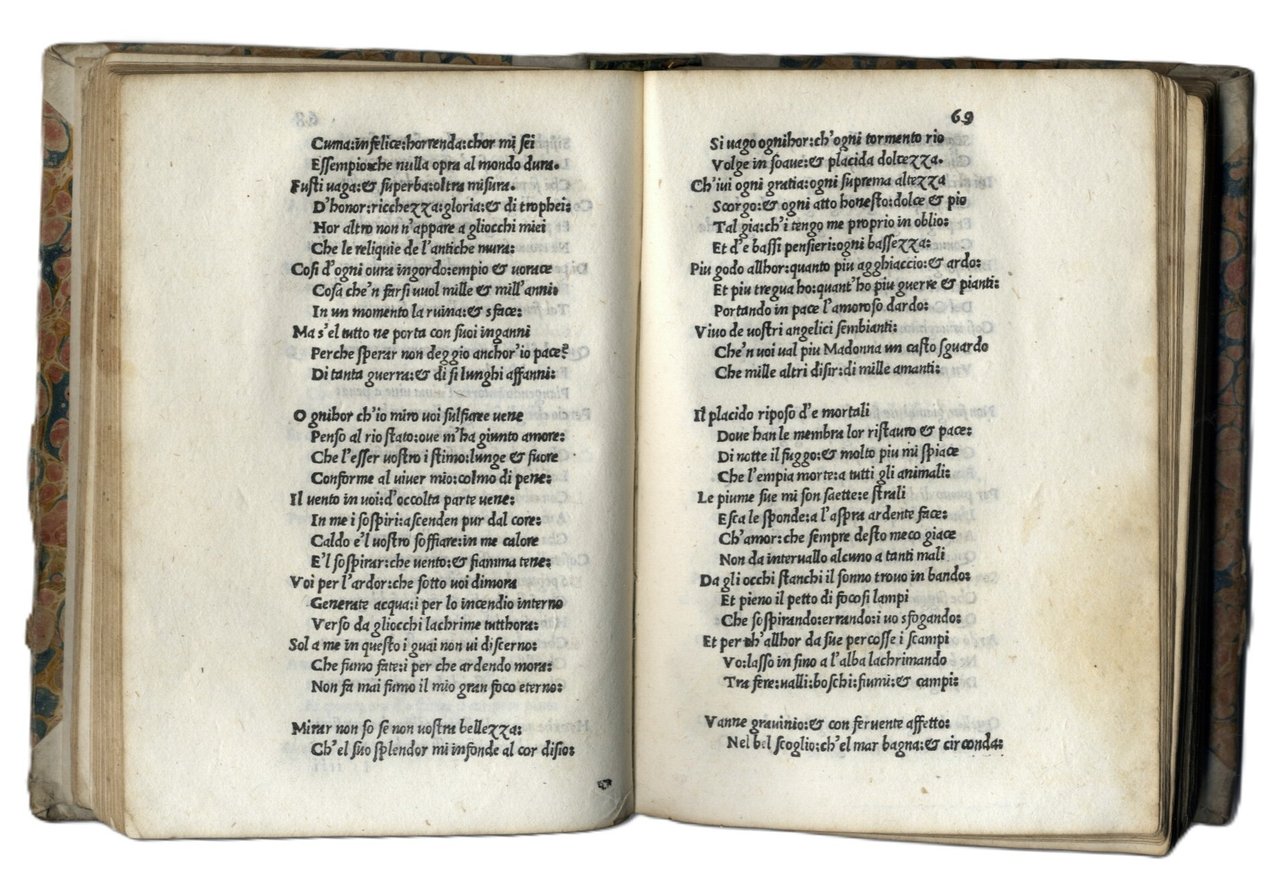 Cuma:infelice:horrenda:chor mi sei
Essempio:che nulla opra al mondo dura.
Fusti vaga:& superba:oltra misura.
D'honor:ricchezza:gloria:& di trophei:
Hor altro non n'appare a gliocchi miei
Che le reliquie de l'antiche mura:
Cosi d'ogni oura ingordo:empio & uorace
Cosa che'n farsi uuol mille & mill'anni.
In un momento la ruina:& sface:
Ma s'el tutto ne porta con suoi inganni
Perche sperar non deggio anchor'io pace?
Di tanta guerra:& di si lunghi affanni:
O gnihor ch'io miro voi sulfuree vene
Penso al rio stato:oue m'ha giunto amore:
Che l'esser uostro i stimo:lunge & fuore
Conforme al uiver mio:colmo di pene:
Il vento in uoi:d'occolta parte vene:
In me i sospiri:ascenden pur dal core:
Caldo e'l uostro soffiare:in me calore
E'l sospirar:che vento:& fiamma tene:
Voi per l'ardor:che sotto voi dimora
Generate acqua:i per lo incendio interno
Verso da gliocchi lachrime tutthora:
Sol a me in questo i guai non ui discerno:
Che fumo fate:i per che ardendo mora:
Non fa mai fumo il mio gran foco eterno:
Mirar non so se non uostra bellezza:
Ch'el suo splendor mi infonde al cor disio:
69
Si uago ognihor:ch'ogni tormento rio
Volge in soaue:& placida dolcezza.
Ch'iui ogni gratia:ogni suprema altezza
Scorgo:& ogni atto honesto:dolce & pio
Tal gia:ch'i tengo me proprio in oblio:
Et d'e bassi pensieri:ogni bassezza:
Piu godo allhor:quanto piu agghiaccio:& ardo:
Et piu tregua ho:quant'ho piu guerre & pianti:
Portando in pace l'amoroso dardo:
Viuo de vostri angelici sembianti:
Che'n voi ual piu Madonna un casto sguardo
Che mille altri disir:di mille amanti:
Il placido riposo d'e mortali
Doue han le membra lor ristauro & pace:
Di notte il fuggo:& molto piu mi spiace
Che l'empia morte:a tutti gli animali:
Le piume sue mi son saette:e strali
Esca le sponde:a l'aspra ardente face:
Ch'amor:che sempre desto meco giace
Non da interuallo alcuno a tanti mali
Da gli occhi stanchi il sonno trovo in bando:
Et pieno il petto di focosi lampi
Che sospirando:errando:i uo sfogando:
Et per ch'allhor da sue percosse i scampi
Vo:lasso in fino a l'alba lachrimando
Tra fere:ualli:boschi:fiumi:& campi:
Vanne grauinio:& con feruente affetto:
Nel bel scoglio:ch'el mar bagna:& circonda: